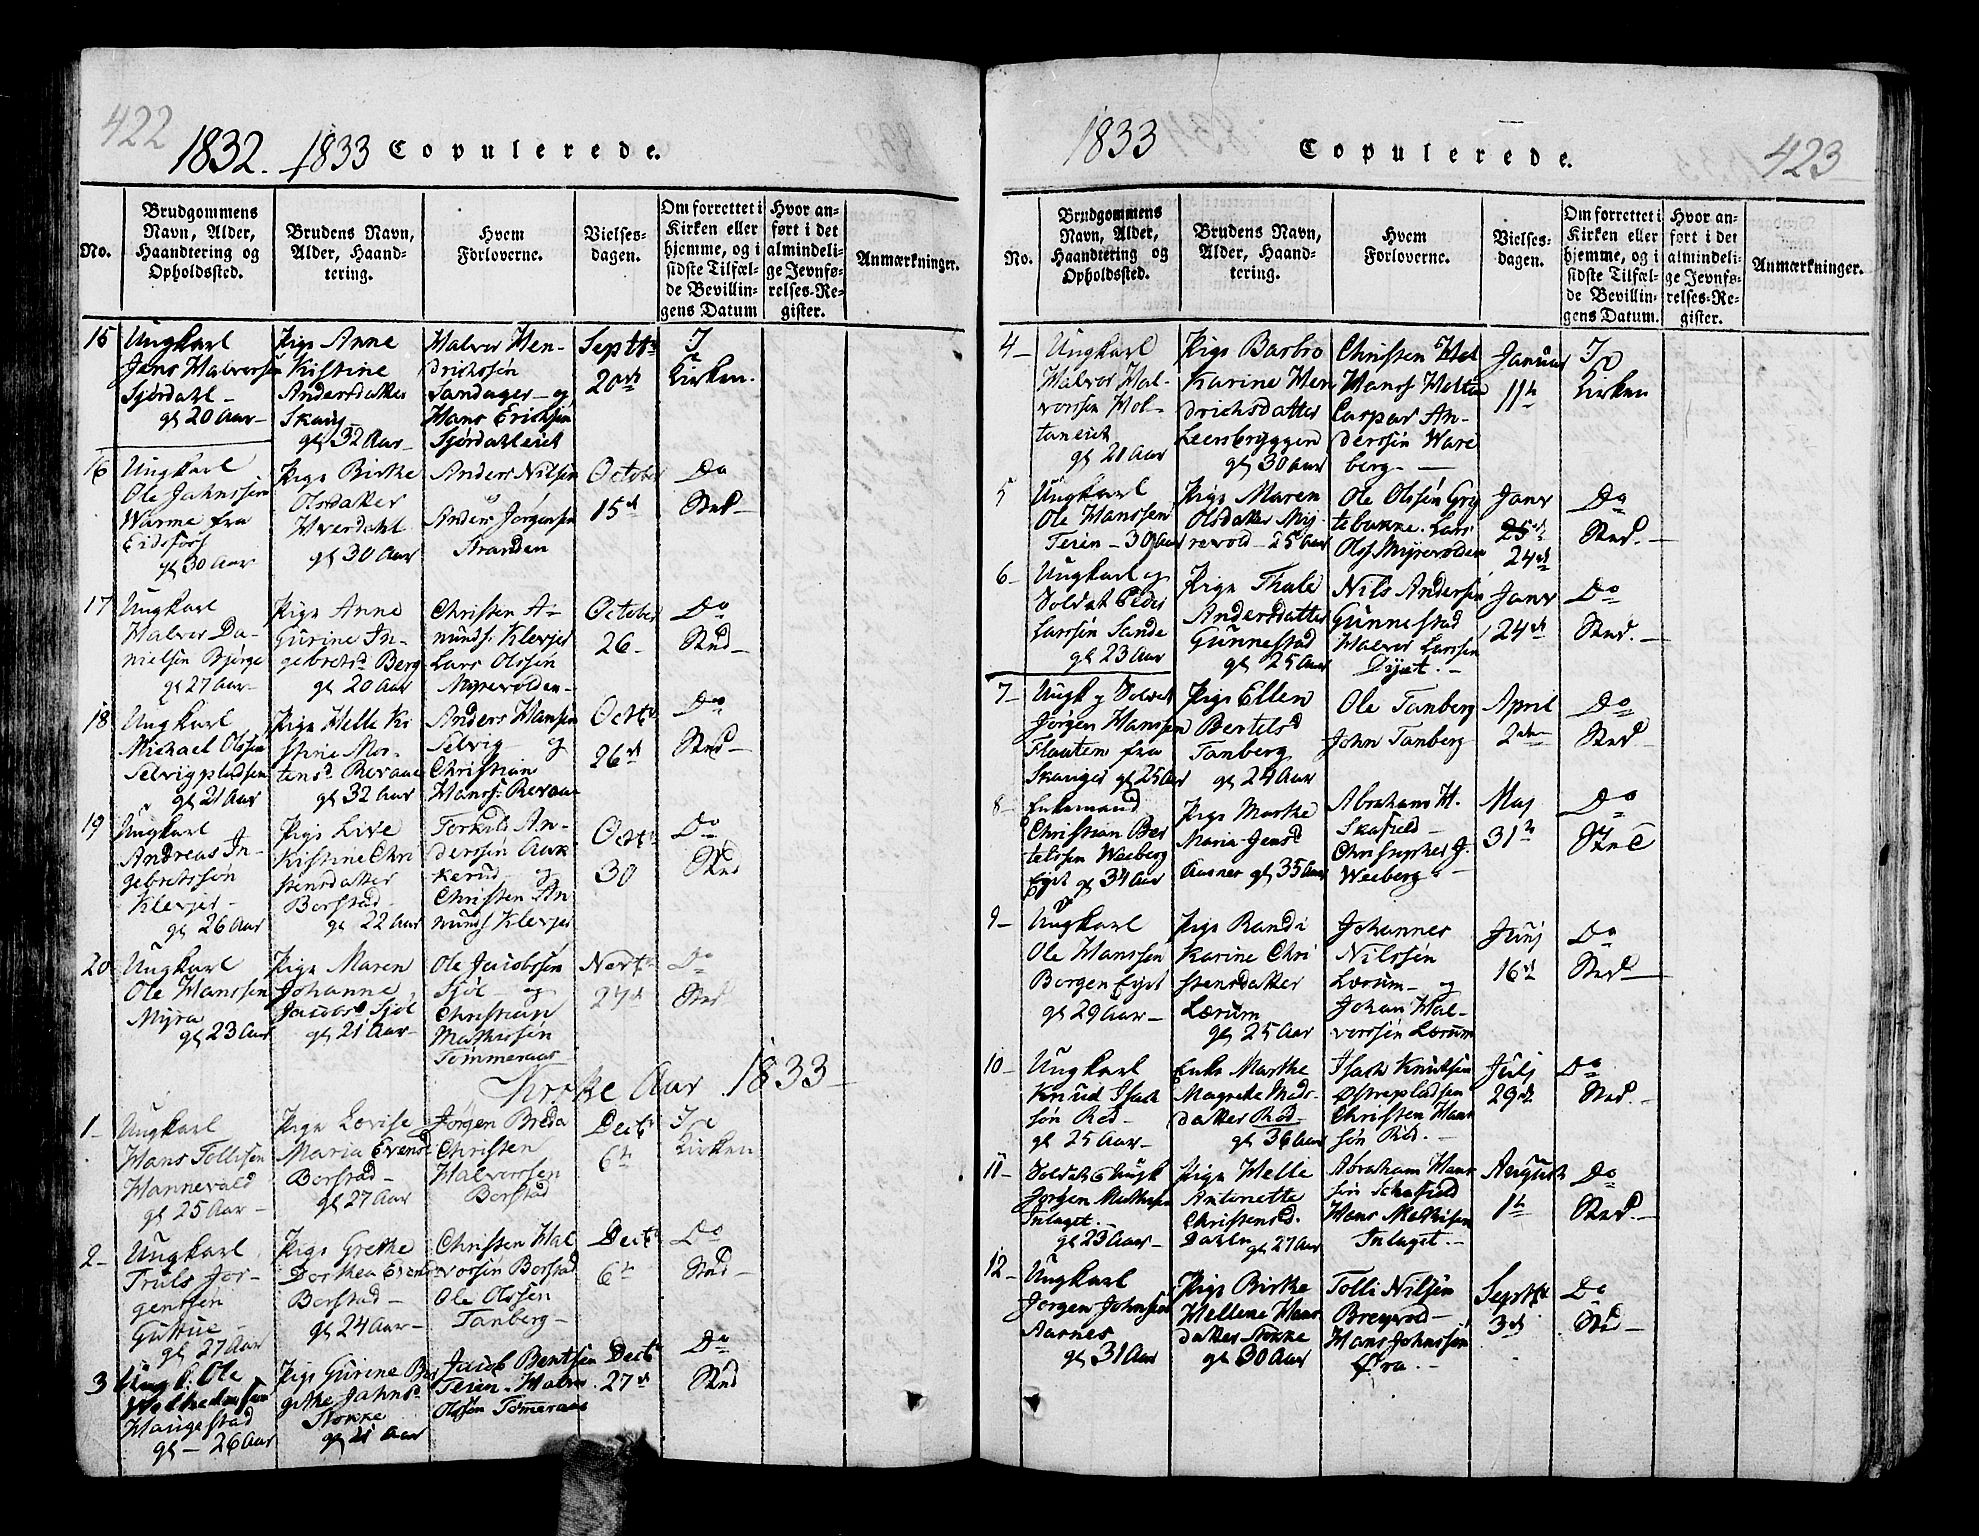 422
1832. 1833 Copulerede.
No.
Brudgommens
Navn, Alder,
Haandtering og
Opholdssted.
Brudens Navn,
Alder, Haand-
tering.
Hvem
Forloverne.
Vielses-
dagen.
Om forrettet i
Kirken eller
hjemme, og i
sidste Tilfæl-
de Bevillin-
gens Datum
Hvor an-
ført i det
almindeli-
ge Jevnfø-
relses-Re-
gister.
Anmærkninger.
15
Ungkarl
Jens Halvorsen
Sjørdahl -
gl 20 Aar -
Pige Anne
Kistine
Andersdatter
Skaug
gl 32 Aar -
Halvor Hen-
drichssøn
Sandager - og
Hans Erichsen
Sjørdahleiet
Septbr
20de
I
Kirken.
16
Ungkarl
Ole Jahnssøn
Warme fra
Eidsfos
gl 30 Aar
Pige Birthe
Olsdatter
Hverdahl
gl 30 Aar
Anders Nilsen
Anders Jørgensen
Stranden
October
15d
Do
Sted -
17
Ungkarl
Halvor Da-
nielsen Bjørge
gl 27 Aar -
Pige Anne
Gurine In-
gebretsd Berg
gl 20 Aar
Christen A-
munds: Klevjer
Lars Olssøn
Myrevolden -
October
26 -
Do
Sted -
18
Ungkarl
Michael Olssen
Selvigpladsen
gl 21 Aar
Pige Helle Ki
stine Mor-
tensd. Revaae
gl 32 Aar
Anders Hansen
Selvig - og
Christian
Hanss: Revaae
Octbr
26d
Do
Sted -
19
Ungkarl
Andreas In-
gebretssøn
Klevjer -
gl 26 Aar
Pige Live
Kistine Chri
stensdatter
Borstad -
gl 22 Aar
Torkild An-
derssøn Aase
kerud - og
Christen Am
munds Klevjer
Octbr
30
Do
Sted
20
Ungkarl
Ole Hanssen
Myra
gl 23 Aar
Pige Maren
Johanne
Jacobsd Sjøl
gl 21 Aar -
Ole Jacobssøn
Sjøl - og
Christian
Mathissøn
Tømmeraas
Novbr
27d
Do
Sted
Kirke Aar 1833 -
1 -
Ungkarl
Hans Tollisøn
Hannevold
gl 25 Aar -
Pige Lovise
Maria Evensd
Borstad -
gl 27 Aar
Jørgen Breda
Christen
Halvorssen
Borstad
Decbr
6te
I
Kirken
2 -
Ungkarl
Truls Jør-
genssen
Guttue -
gl 27 Aar
Pige Grethe
Dorthea Evens
Borstad -
gl 24 Aar -
Christen Hal
vorssøn Borstad
Ole Olssen
Tanberg -
Decbr
6te
Do
Sted -
3
Ungk. Ole
Haugestad
gl - 26 Aar
Pige Gurine Ber
githe Jahnsd
Stokke
gl 21 Aar
Jacob Bentsen
Teien - Halvor
Olssøn Tømeraas
Decbr
27d
Do
Sted
1833
Copulerede.
423
No.
Brudgommens
Navn, Alder,
Haandtering og
Opholdssted.
Brudens Navn,
Alder, Haand-
tering.
Hvem
Forloverne.
Vielses-
dagen.
Om forrettet i
Kirken eller
hjemme, og i
sidste Tilfæl-
de Bevillin-
gens Datum.
Hvor an-
ført i det
almindeli-
ge Jevnfø-
relses-Re-
gister.
Anmærkninger.
4 -
Ungkarl
Halvor Hal-
vorssen Hol-
taneiet
gl 21 Aar
Pige Barbro
Karine Hen
drichsdatter
Leersbryggen
gl 30 Aar
Christen
Hanss Holtan
Caspar An-
derssøn Ware
berg - -
Januar
11te
I
Kirken
5
Ungkarl
Ole Hanssen
Teien - 30 Aar
Pige Maren
Olsdatter My-
revold - 25 Aar
Ole Olssøn Gry
tebakke. Lars
Olss Myrevolden
Janr
25d
24d
Do
Sted. -
6 -
Ungkarl og
Soldat Peder
Larssøn Sande
gl 23 Aar
Pige Thale
Andersdatter
Gunnestad
gl 25 Aar
Nils Andersen
Gunnestad
Halvor Larssen
Janr
24d
Do
Sted. -
7 -
Ungk og Soldat
Jørgen Hanssen
Flauten fra
Skauger gl 25 Aar
Pige Ellen
Bertelsd
Tanberg
gl 24 Aar
Ole Tanberg
John Tanberg
April
2den
Do
Sted -
8 -
Enkemand
Christian Ber
telssen Weeberg
Eyet gl 34 Aar
Pige Marthe
Maria Jensd
Aasnes gl 35 Aar
Abraham H.
Skafjeld -
Christopher J.
Weeberg -
Maj
31te
Do
Sted
9 -
Ungkarl
Ole Hanssen
Borgen Eyet
gl 29 Aar -
Pige Randi
Karine Chri
stensdatter
Lærum
gl 25 Aar
Johannes
Nilssøn
Lærum - og
Johan Hal-
vorssøn Lærum
Junj
16d
Do
Sted -
10 -
Ungkarl
Knud Isach
søn Rød -
gl 25 Aar -
Enke Marthe
Magrethe Mads-
datter Rød -
gl 36 Aar
Isach Knutsen
Østrepladsen
Christen Hans
søn Rød. -
Julj
29d
Do
Sted. -
11 -
Soldat & Ungk
Jørgen Mathisen
Inlaget. -
gl 23 Aar -
Pige Helle
Antonette
Christensd.
Dahlen gl 27 Aar
Abraham Han
søn Schafjeld
Hans Mathisen
Inlaget. -
August
1te
Do
Sted -
12 -
Ungkarl
Jørgen Johnsen
Aarnes
gl 31 Aar
Pige Birthe
Hellene Hans
datter Stokke
gl 30 Aar
Tolli Nilsøn
Breivold -
Hans Johnssøn
Øra. -
Septbr
3d
Do
Sted -